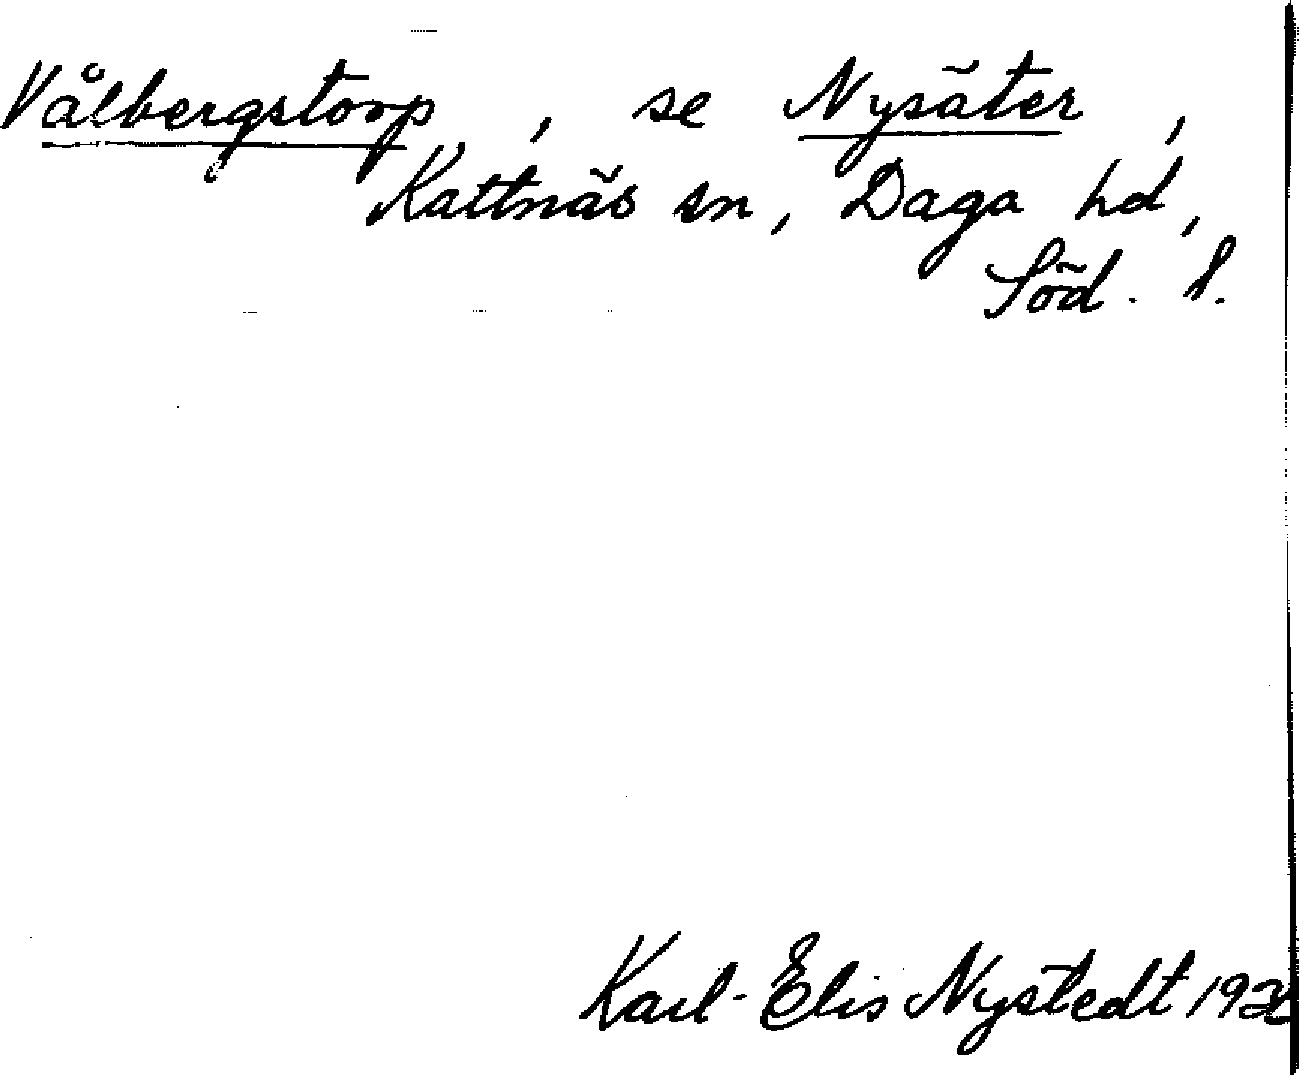 Vålbergstorp, se Nysäter,
Kattnäs sn, Daga hd,
Söd. l.
Karl-Elis Nystedt